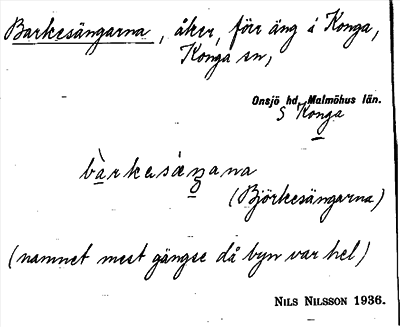 Barkesängarna, åker, förr äng i Konga,
Konga sn,
Onsjö hd, Malmöhus län.
S Konga
bàrkesæŋana
(Björkesängarna)
(namnet mest gängse då byn var hel)
NILS NILSSON 1936.